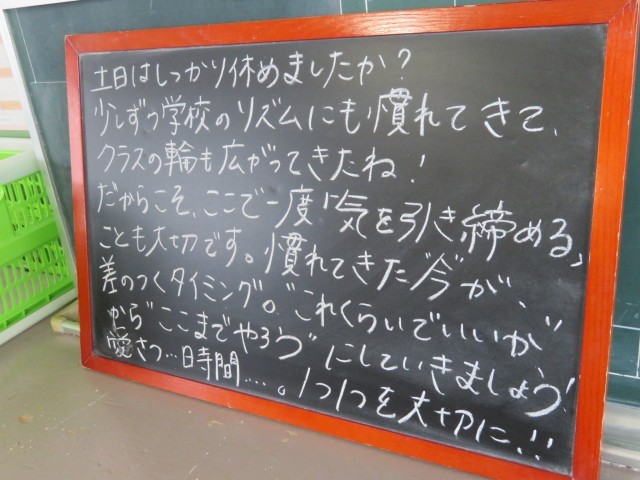 土日はしっかり休めましたか?
少しずつ学校のリズムにも慣れてきて、
クラスの輪も広がってきたね!
だからこそ、ここで一度"気を引き締める"
ことも大切です。慣れてきた"今"が、
差のつくタイミング。"これくらいでいいか"
から"ここまでやろう"にしていきましょう!
愛さつ…日時間….。1つ1つを大切に!!